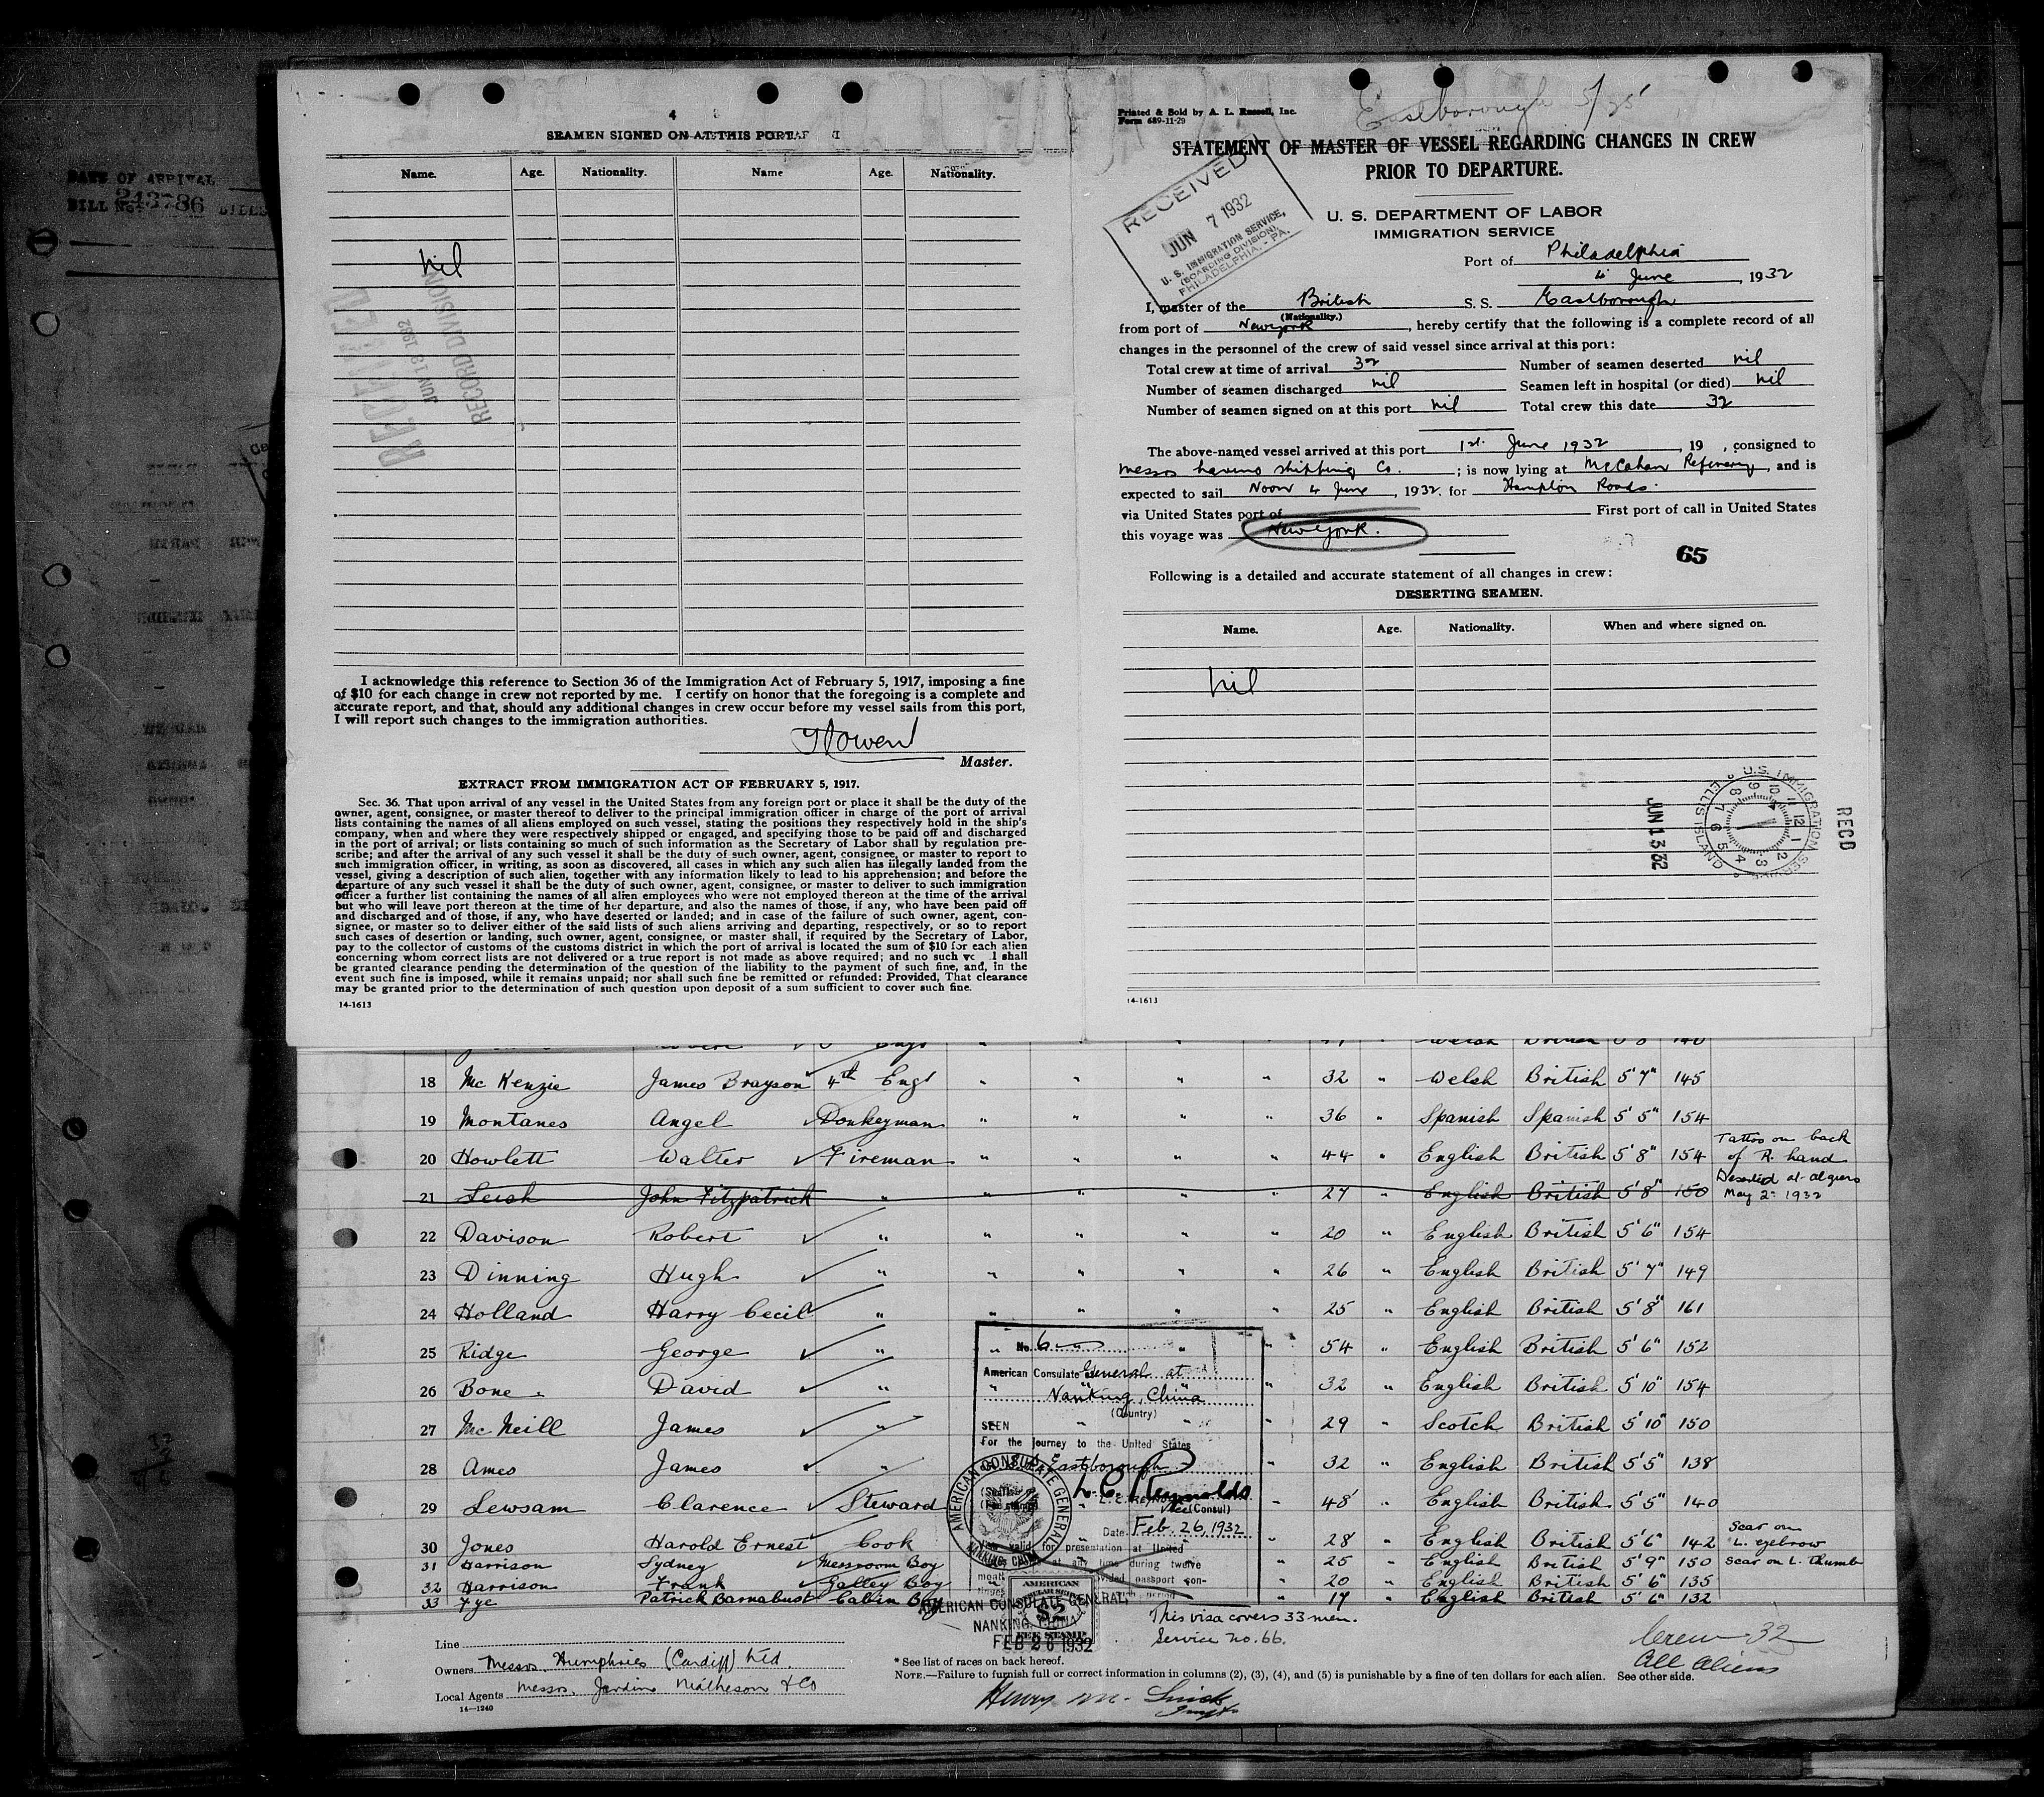 DATE OF ARRIVAL
BILL No. 243786
4
SEAMEN SIGNED ON AT THIS PORT
Name. Age. Nationality. Name Age. Nationality.
nil
RECEIVED
JUN 13 1932
RECORD DIVISION
I acknowledge this reference to Section 36 of the Immigration Act of February 5, 1917, imposing a fine
of $10 for each change in crew not reported by me. I certify on honor that the foregoing is a complete and
accurate report, and that, should any additional changes in crew occur before my vessel sails from this port,
I will report such changes to the immigration authorities.
Master.
EXTRACT FROM IMMIGRATION ACT OF FEBRUARY 5, 1917.
Sec. 36. That upon arrival of any vessel in the United States from any foreign port or place it shall be the duty of the
owner, agent, consignee, or master thereof to deliver to the principal immigration officer in charge of the port of arrival
lists containing the names of all aliens employed on such vessel, stating the positions they respectively hold in the ship's
company, when and where they were respectively shipped or engaged, and specifying those to be paid off and discharged
in the port of arrival; or lists containing so much of such information as the Secretary of Labor shall by regulation pre-
scribe; and after the arrival of any such vessel it shall be the duty of such owner, agent, consignee, or master to report to
such immigration officer, in writing, as soon as discovered, all cases in which any such alien has illegally landed from the
vessel, giving a description of such alien, together with any information likely to lead to his apprehension; and before the
departure of any such vessel it shall be the duty of such owner, agent, consignee, or master to deliver to such immigration
officer a further list containing the names of all alien employees who were not employed thereon at the time of the arrival
but who will leave port thereon at the time of her departure, and also the names of those, if any, who have been paid off
and discharged and of those, if any, who have deserted or landed; and in case of the failure of such owner, agent, con-
signee, or master so to deliver either of the said lists of such aliens arriving and departing, respectively, or so to report
such cases of desertion or landing, such owner, agent, consignee, or master shall, if required by the Secretary of Labor,
pay to the collector of customs of the customs district in which the port of arrival is located the sum of $10 for each alien
concerning whom correct lists are not delivered or a true report is not made as above required; and no such shall
be granted clearance pending the determination of the question of the liability to the payment of such fine, and, in the
event such fine is imposed, while it remains unpaid; nor shall such fine be remitted or refunded: Provided, That clearance
may be granted prior to the determination of such question upon deposit of a sum sufficient to cover such fine.
14-1613
Printed & Sold by A. L. Russell, Inc.
Form 689-11-29
Eastborough 5/25
STATEMENT OF MASTER OF VESSEL REGARDING CHANGES IN CREW
PRIOR TO DEPARTURE.
RECEIVED
JUN 7 1932
U. S. IMMIGRATION SERVICE,
(BOARDING DIVISION),
PHILADELPHIA, - PA.
U. S. DEPARTMENT OF LABOR
IMMIGRATION SERVICE
Port of Philadelphia
4 June, 1932
I, master of the British S. S. Eastborough
(Nationality.)
from port of Newyork, hereby certify that the following is a complete record of all
changes in the personnel of the crew of said vessel since arrival at this port:
Total crew at time of arrival 32 Number of seamen deserted nil
Number of seamen discharged nil Seamen left in hospital (or died) nil
Number of seamen signed on at this port nil Total crew this date 32
The above-named vessel arrived at this port 1st June 1932, 19 , consigned to
Messrs havino shipping Co. ; is now lying at McCahan Refinery, and is
expected to sail Noon 4 June, 1932. for Hampton Roads.
via United States port of First port of call in United States
this voyage was New York.
65
Following is a detailed and accurate statement of all changes in crew:
DESERTING SEAMEN.
Name. Age. Nationality. When and where signed on.
nil
U.S. IMMIGRATION SERVICE
ELLIS ISLAND
JUN 13 32
RECD
14-1613
18 McKenzie James Brayson 4th Engr " " " " 32 " Welsh British 5'7" 145
19 Montanes Angel Donkeyman " " " " 36 " Spanish Spanish 5'5" 154
20 Howlett Walter Fireman " " " " 44 " English British 5'8" 154 Tattoo on back
of R. hand
21 Leish John Fitzpatrick " " " " " 27 " English British 5'8" 150 Deserted at algiers
May 2: 1932
22 Davison Robert " " " " " 20 " English British 5'6" 154
23 Dinning Hugh " " " " " 26 " English British 5'7" 149
24 Holland Harry Cecil " " " " " 25 " English British 5'8" 161
25 Ridge George " " " " 54 " English British 5'6" 152
26 Bone David " " " " 32 " English British 5'10" 154
27 McNeill James " " " " 29 " Scotch British 5'10" 150
28 Ames James " " 32 " English British 5'5" 138
29 Lewsam Clarence Steward " 48 " English British 5'5" 140
30 Jones Harold Ernest Cook " 28 " English British 5'6" 142 Scar on
L. eyebrow
31 Harrison Sydney Messroom Boy " 25 " English British 5'9" 150 Scar on L. Thumb
32 Harrison Frank Galley Boy " 20 " English British 5'6" 135
33 Fye Patrick Barnabust Cabin Boy " 17 " English British 5'6" 132
No. 6
American Consulate General at
Nanking, China
(Country)
SEEN
For the journey to the United States
Eastborough
L. C. Reynolds
Vice (Consul)
Date Feb. 26, 1932
valid for presentation at United
at any time during twelve
provided passport con-
AMERICAN CONSULATE GENERAL
NANKING, CHINA
AMERICAN
$2
FEE STAMP
AMERICAN CONSULATE GENERAL,
NANKING, CHINA
FEB 26 1932
This visa covers 33 men.
Service no. 66.
Crew 32
All Aliens
Line
Owners Messrs. Humphries (Cardiff) Ltd
Local Agents Messrs. Jardine Matheson & Co
14—1240
* See list of races on back hereof.
NOTE.—Failure to furnish full or correct information in columns (2), (3), (4), and (5) is punishable by a fine of ten dollars for each alien. See other side.
Henry M.